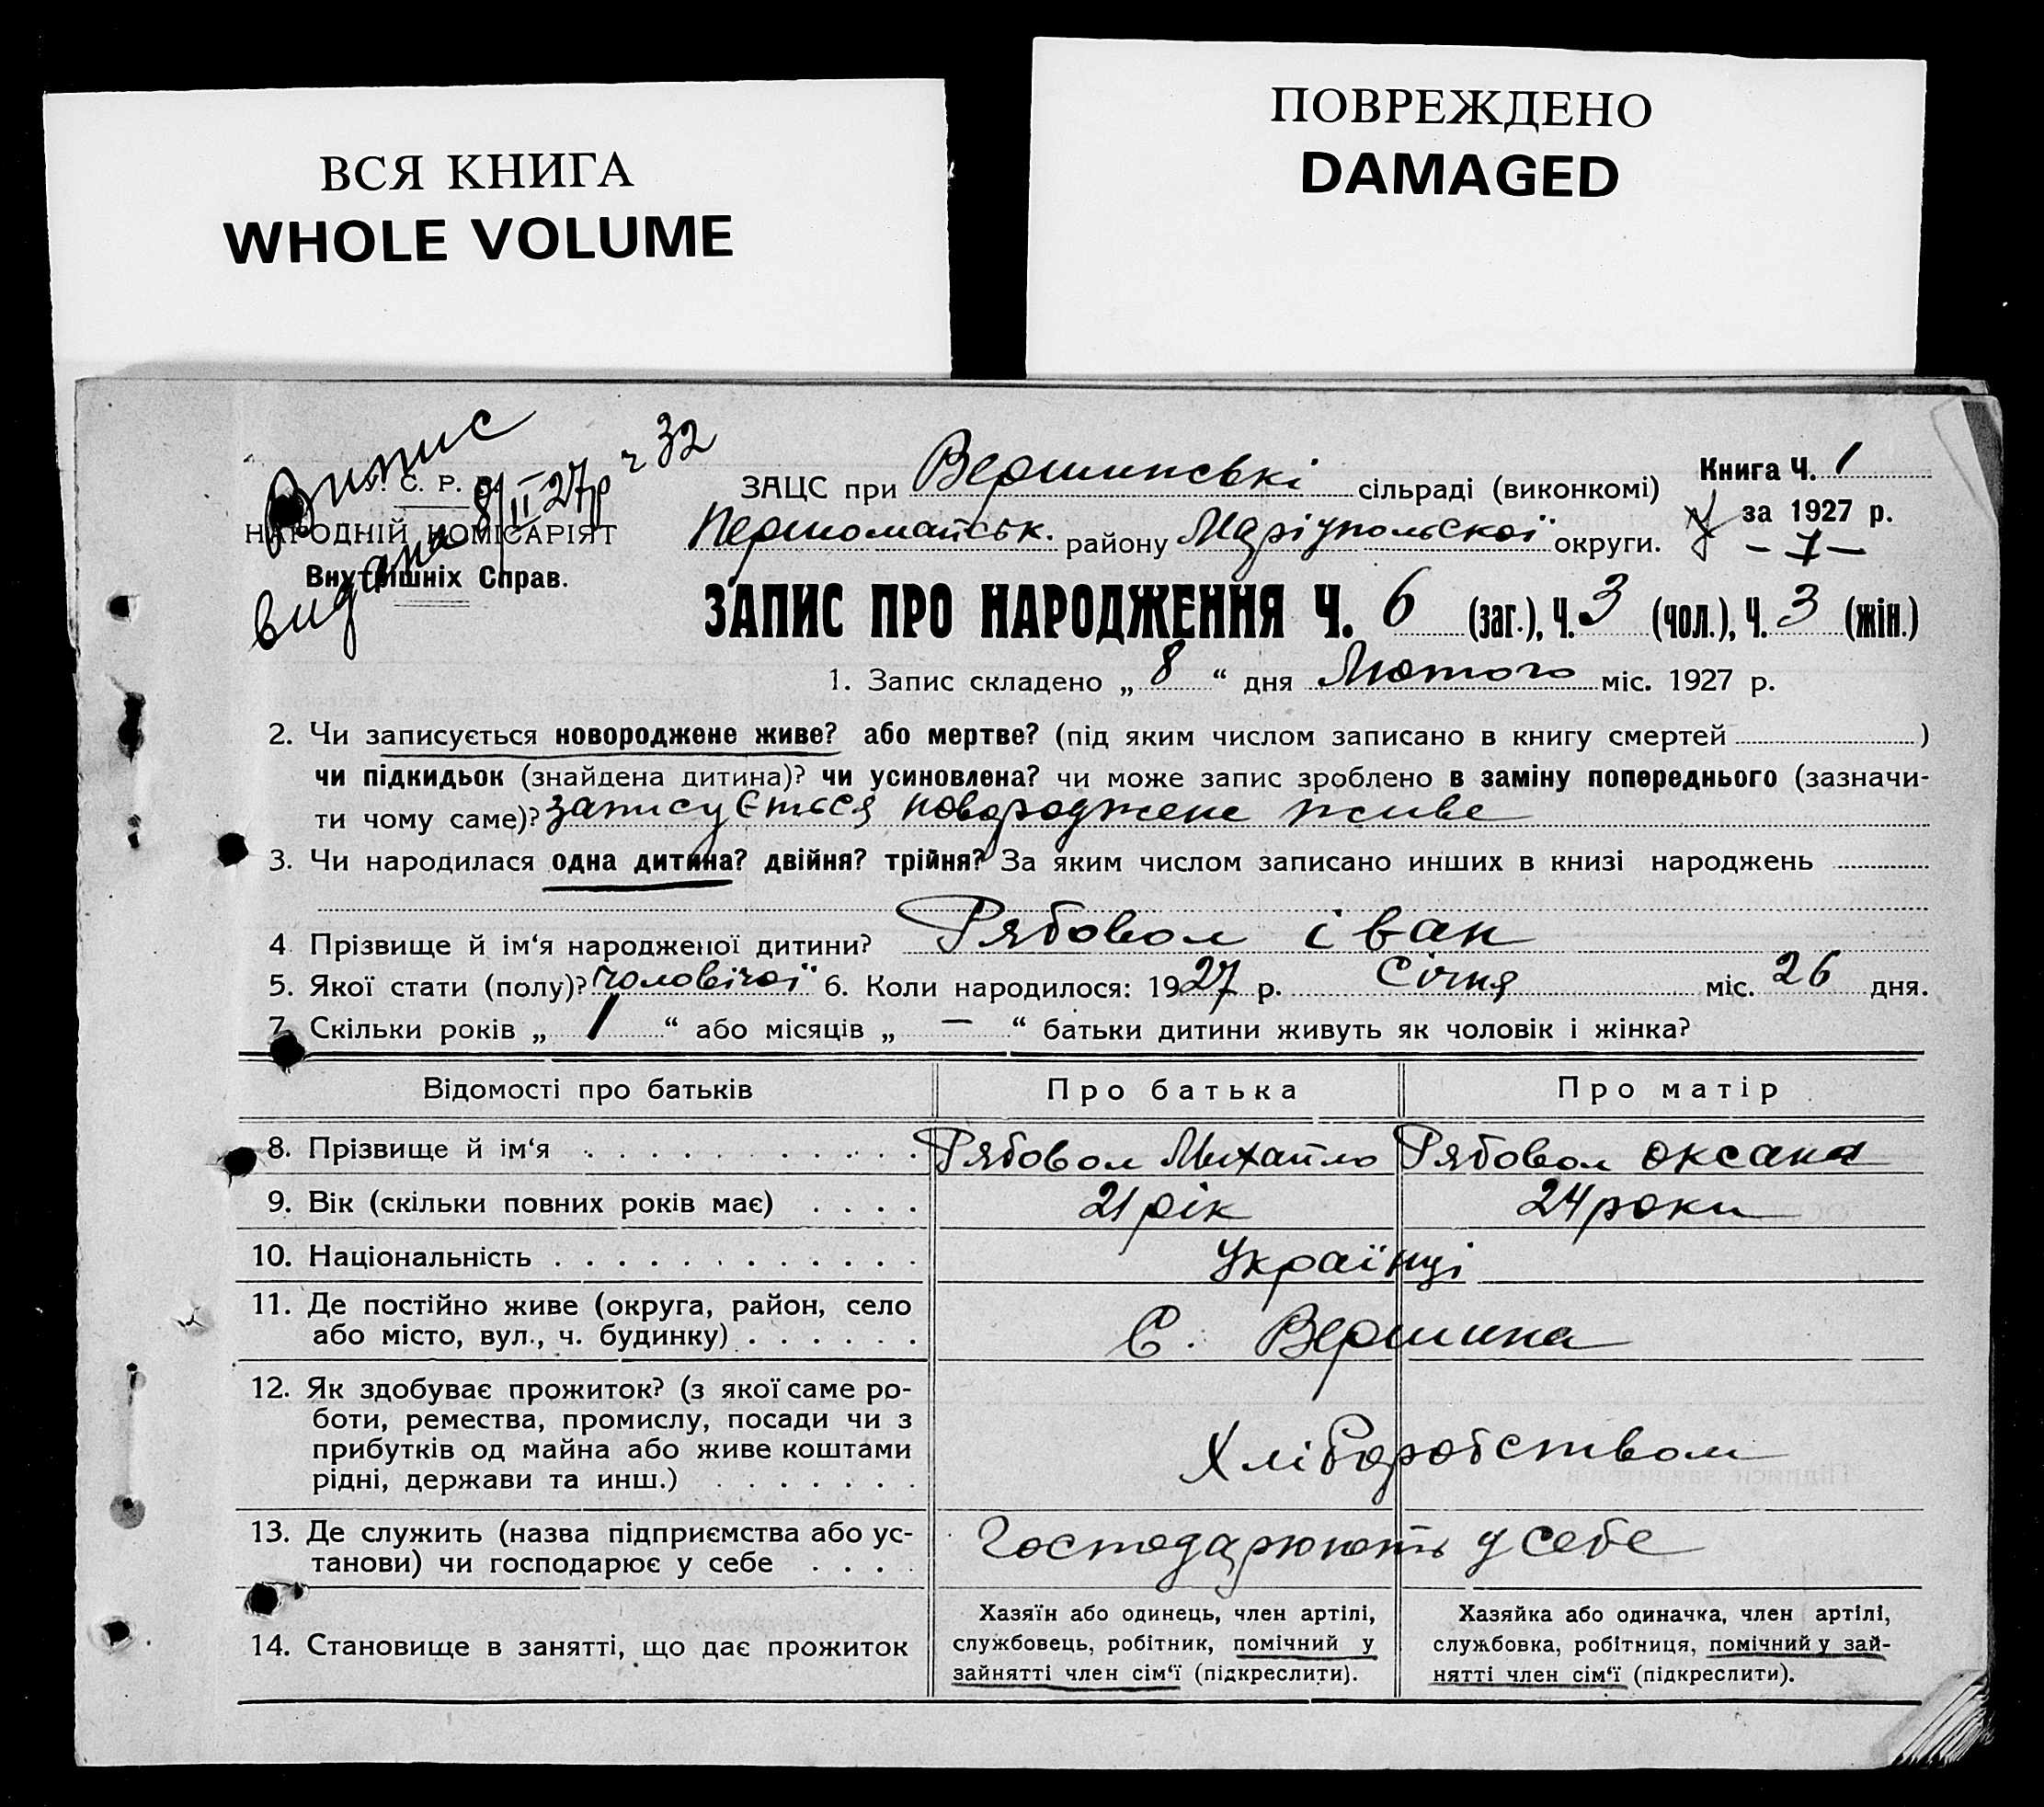 ВСЯ КНИГА
WHOLE VOLUME
ПОВРЕЖДЕНО
DAMAGED
Випис
видана 8/II 27р ч 32
У. С. Р. Р.
НАРОДНІЙ КОМІСАРІЯТ
Внутрішніх Справ.
ЗАЦС при Вершинські сільраді (виконкомі)
Першомайськ. району Маріупольскої округи.
Книга Ч. 1
за 1927 р.
– 7 –
ЗАПИС ПРО НАРОДЖЕННЯ Ч. 6 (заг.), Ч. 3 (чол.), Ч. 3 (жін.)
1. Запис складено „ 8 “ дня Лютого міс. 1927 р.
2. Чи записується новороджене живе? або мертве? (під яким числом записано в книгу смертей )
чи підкидьок (знайдена дитина)? чи усиновлена? чи може запис зроблено в заміну попереднього (зазначи-
ти чому саме)? записуЄться новороджене живе
3. Чи народилася одна дитина? двійня? трійня? За яким числом записано инших в книзі народжень
4 Прізвище й ім‘я народженої дитини? Рябовол іван
5. Якої стати (полу)? чоловічої 6. Коли народилося: 1927 р. Січня міс. 26 дня.
7. Скільки років „ 1 “ або місяців „ — “ батьки дитини живуть як чоловік і жінка?
Відомості про батьків Про батька Про матір
8. Прізвище й ім‘я Рябовол Михайло Рябовол Оксана
9. Вік (скільки повних років має) 21 рік 24 роки
10. Національність Українці
11. Де постійно живе (округа, район, село
або місто, вул., ч. будинку) С. Вершина
12. Як здобуває прожиток? (з якої саме ро-
боти, ремества, промислу, посади чи з
прибутків од майна або живе коштами
рідні, держави та инш.) Хліборобством
13. Де служить (назва підприємства або ус-
танови) чи господарює у себе Господарюють у себе
14. Становище в занятті, що дає прожиток
Хазяїн або одинець, член артілі,
службовець, робітник, помічний у
зайнятті член сім‘ї (підкреслити).
Хазяйка або одиначка, член артілі,
службовка, робітниця, помічний у зай-
нятті член сім‘ї (підкреслити).